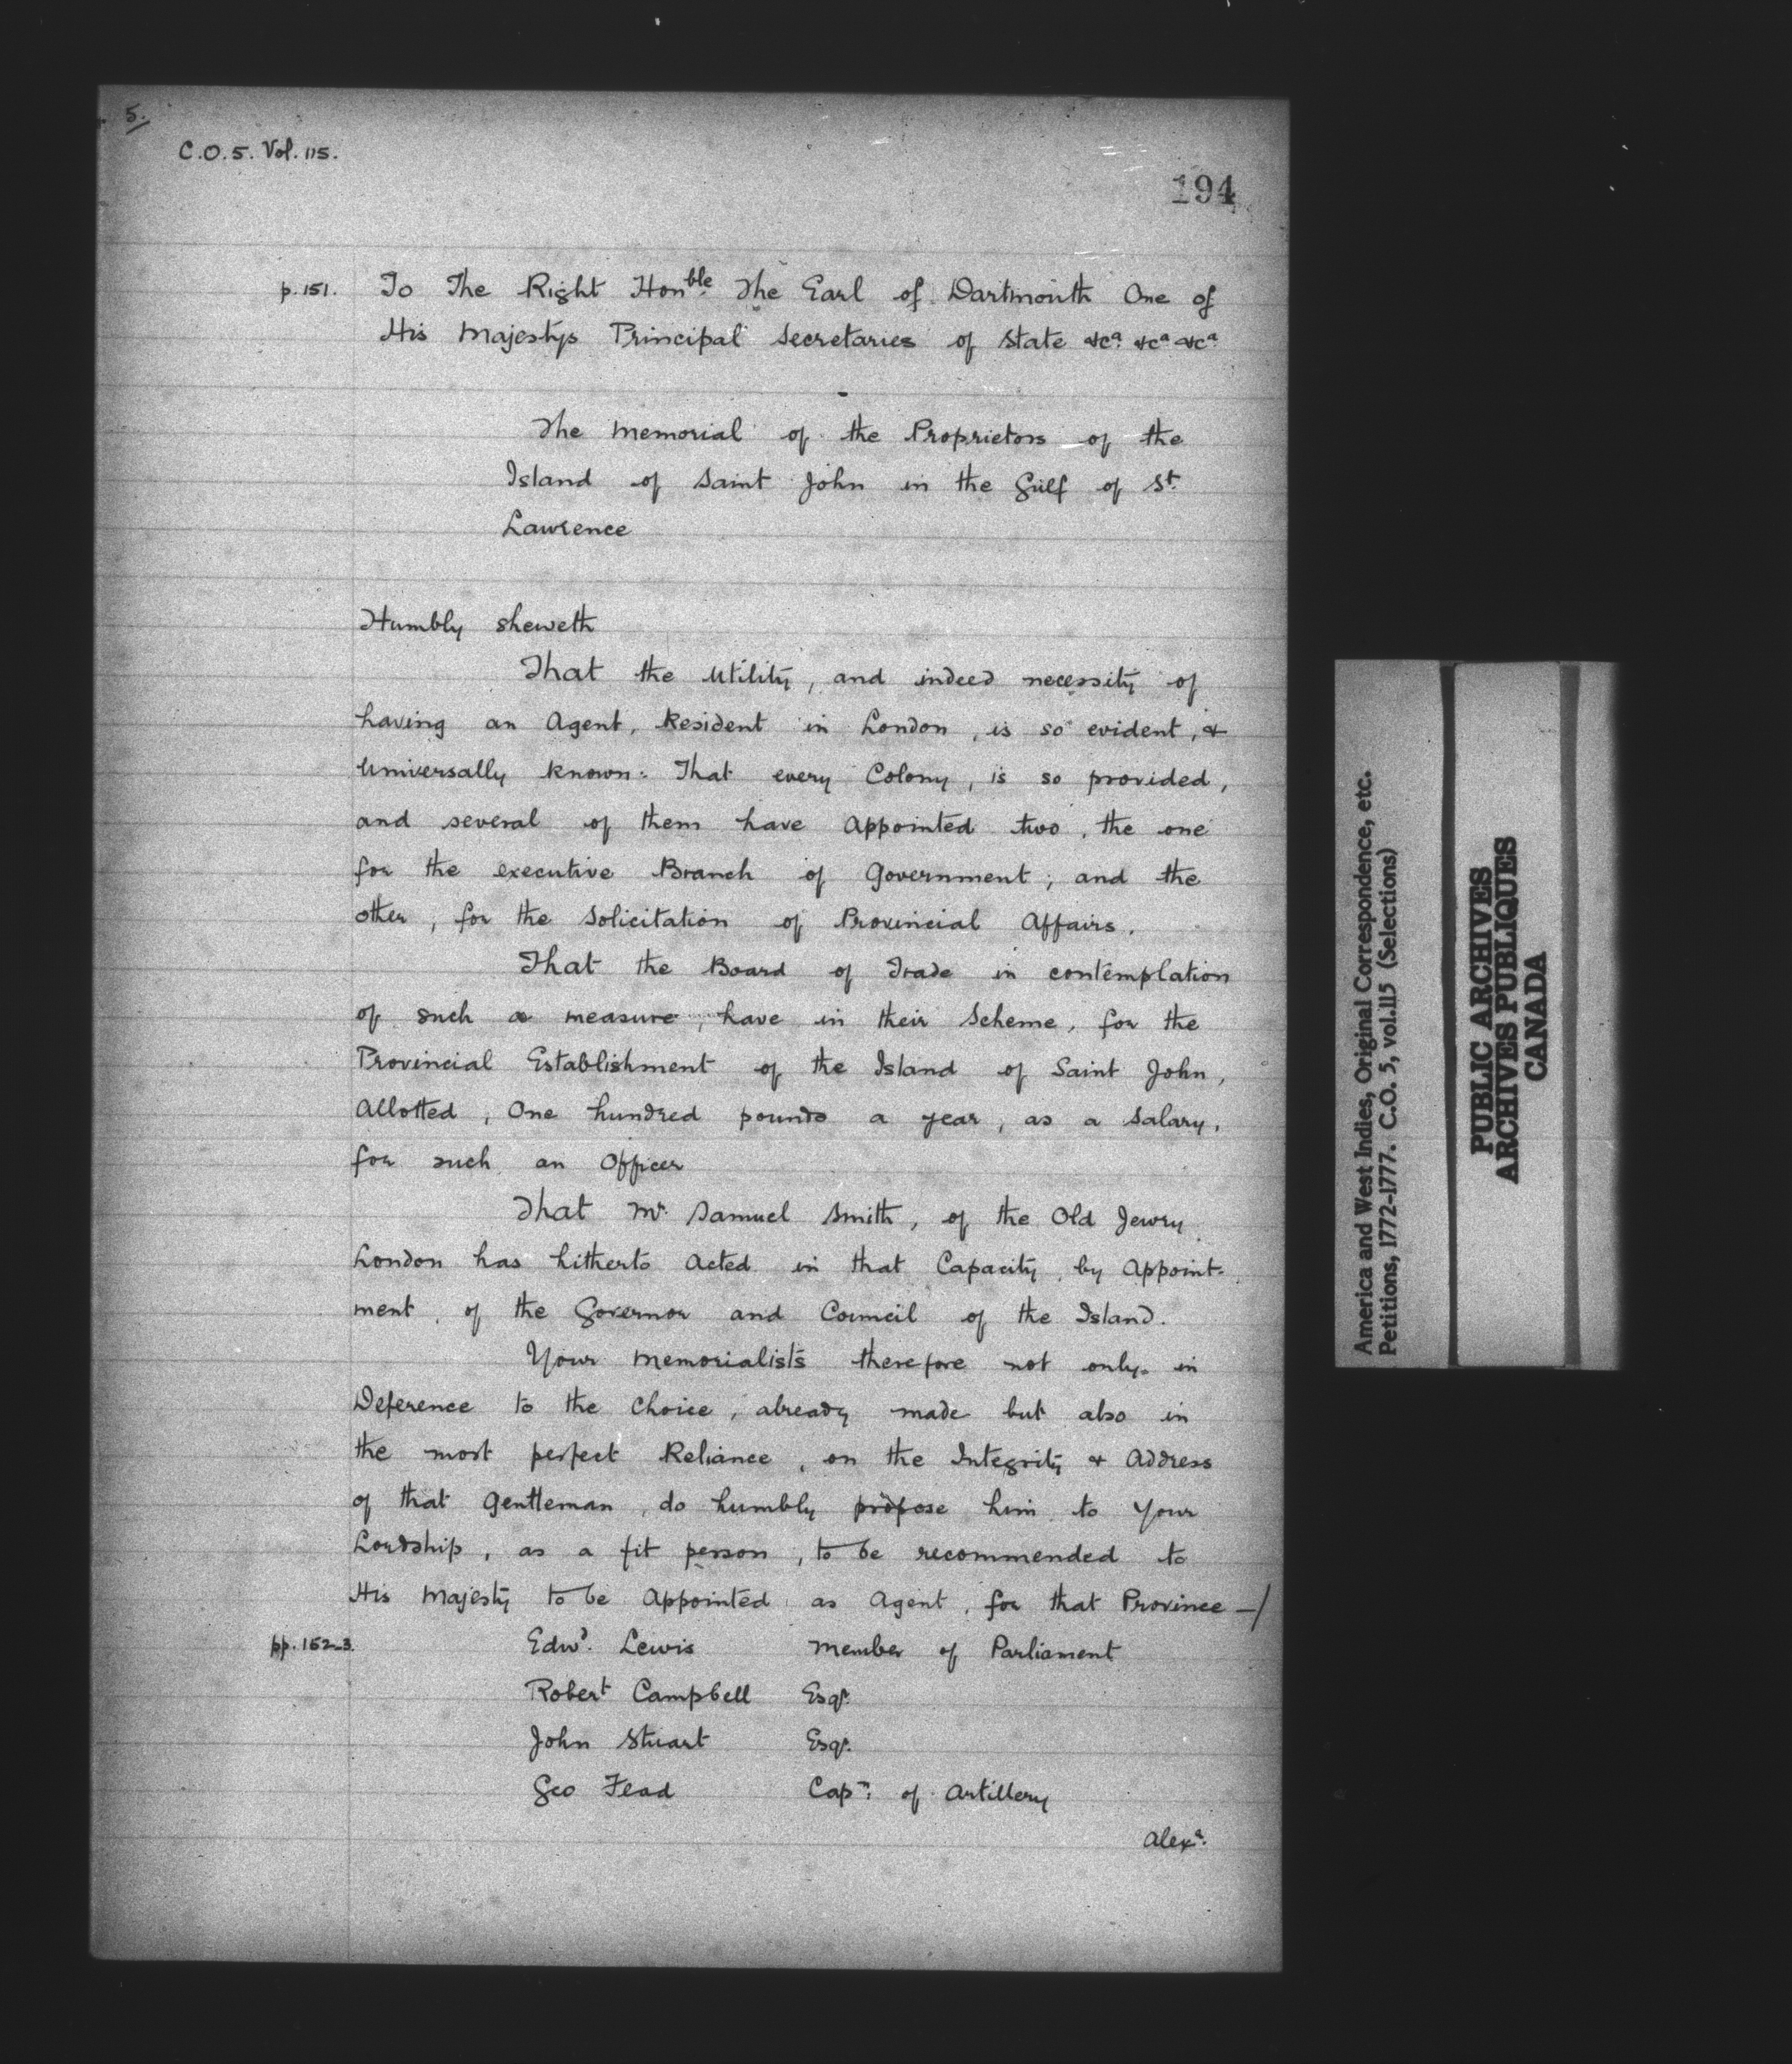 5.
C.O.5. Vol. 115.
194
p. 151. To The Right Honble. The Earl of Dartmouth One of
His Majestys Principal Secretaries of State &ca. &ca &ca.
The Memorial of the Proprietors of the
Island of Saint John in the Gulf of St.
Lawrence
Humbly sheweth
That the Utility, and indeed necessity of
having an Agent, Resident in London, is so evident, &
Universally known: That every Colony, is so provided,
and several of them have Appointed two, the one
for the executive Branch of Government; and the
other, for the Solicitation of Provincial Affairs.
That the Board of Trade in contemplation
of such a measure, have in their Scheme, for the
Provincial Establishment of the Island of Saint John,
Allotted, One hundred pounds a year, as a Salary,
for such an Officer
That Mr. Samuel Smith, of the Old Jewry
London has hitherto Acted in that Capacity, by Appoint-
ment, of the Governor and Council of the Island.
Your Memorialists therefore not only in
Deference to the Choice, already made but also in
the most perfect Reliance, on the Integrity & Address
of that Gentleman, do humbly propose him to Your
Lordship, as a fit person, to be recommended to
His Majesty to be Appointed as Agent, for that Province —/
pp. 152-3. Edwd. Lewis Member of Parliament
Robert Campbell Esqr.
John Stuart Esqr.
Geo Flad Capn. of Artillery
Alexr.
America and West Indies, Original Correspondence, etc.
Petitions, 1772-1777. C.O. 5, vol.115 (Selections)
PUBLIC ARCHIVES
ARCHIVES PUBLIQUES
CANADA